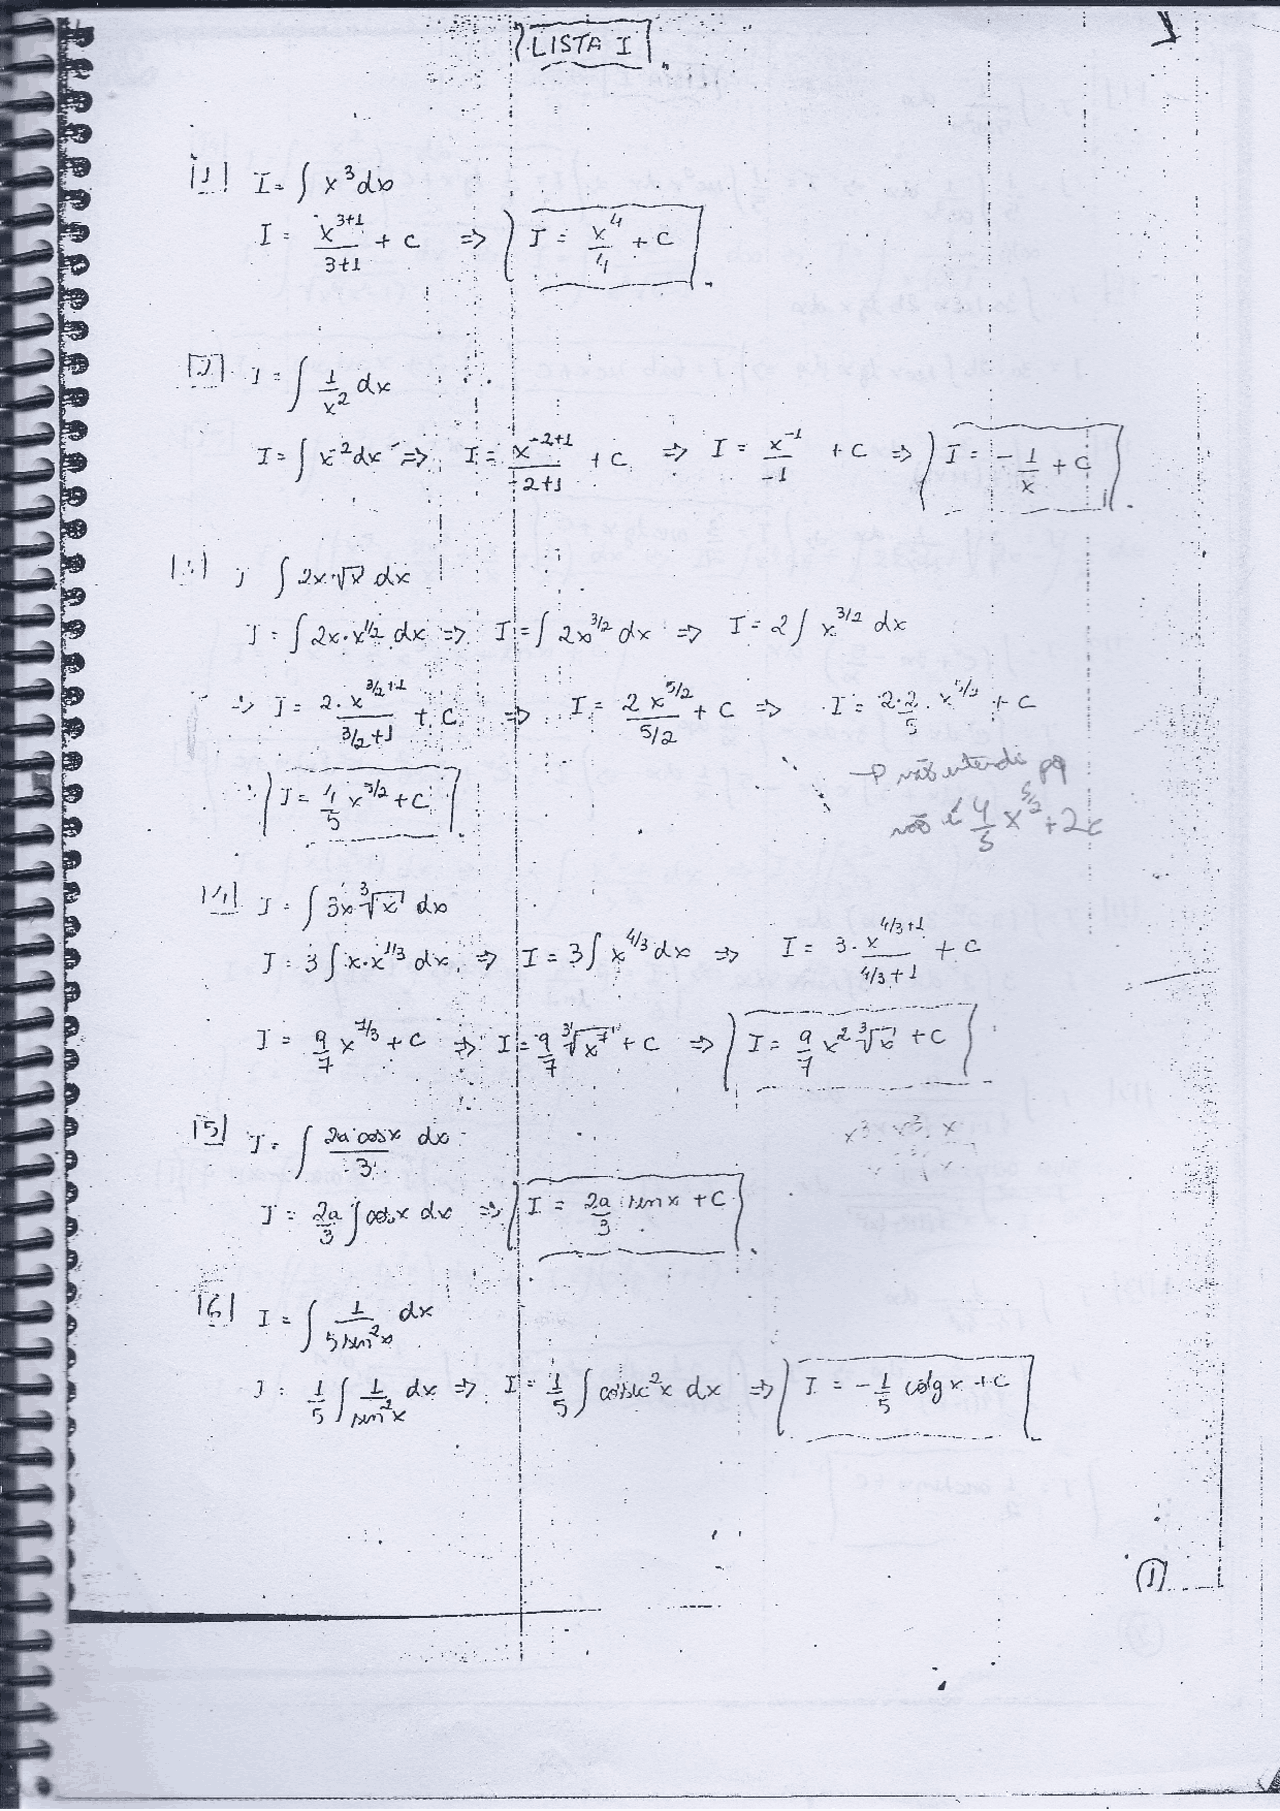 LISTA I
|1| I = ∫ x³ dx
I = x^(3+1)/(3+1) + C ⇒ I = x⁴/4 + C
|2| I = ∫ 1/x² dx
I = ∫ x⁻² dx ⇒ I = x^(-2+1)/(-2+1) + C ⇒ I = x⁻¹/-1 + C ⇒ I = -1/x + C
|3| I ∫ 2x·√x dx
I = ∫ 2x·x^(1/2) dx ⇒ I = ∫ 2x^(3/2) dx ⇒ I = 2∫ x^(3/2) dx
⇒ I = 2·x^(3/2+1)/(3/2+1) + C ⇒ I = 2x^(5/2)/(5/2) + C ⇒ I = 2·2/5·x^(5/2) + C
I = 4/5 x^(5/2) + C
→ não entendi pq
não é 4/5 x^(5/2) + 2c
|4| I = ∫ 3x ³√x dx
I = 3∫ x·x^(1/3) dx ⇒ I = 3∫ x^(4/3) dx ⇒ I = 3·x^(4/3+1)/(4/3+1) + C
I = 9/7 x^(7/3) + C ⇒ I = 9/7 ³√x⁷ + C ⇒ I = 9/7 x² ³√x + C
x³·x³·x
|5| I = ∫ 2a cosx/3 dx
I = 2a/3 ∫ cosx dx ⇒ I = 2a/3 senx + C
|6| I = ∫ 1/(5 sen²x) dx
I = 1/5 ∫ 1/sen²x dx ⇒ I = 1/5 ∫ cossec²x dx ⇒ I = -1/5 cotgx + C
(1)